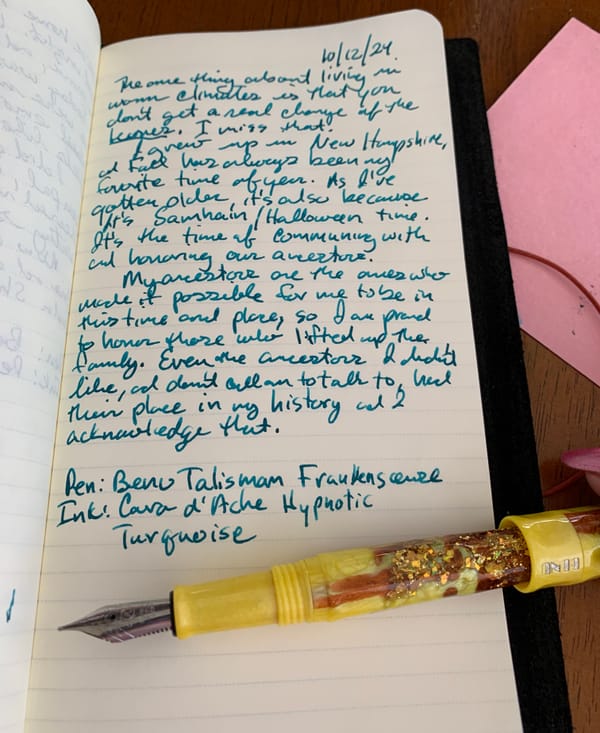 10/12/24
The one thing about living in
warm climates is that you
don't get a real change of the
leaves. I miss that.
I grew up in New Hampshire,
and Fall has always been my
favorite time of year. As I've
gotten older, it's also because
it's Samhain/Halloween time.
It's the time of communing with
and honoring our ancestors.
My ancestors are the ones who
made it possible for me to be in
this time and place, so I am proud
to honor those who lifted up the
family. Even the ancestors I didn't
like, and don't call on to talk to, had
their place in my history and I
acknowledge that.
Pen: Benu Talisman Frankenscense
Ink: Cara d'Ache Hypnotic
Turquoise
BENU